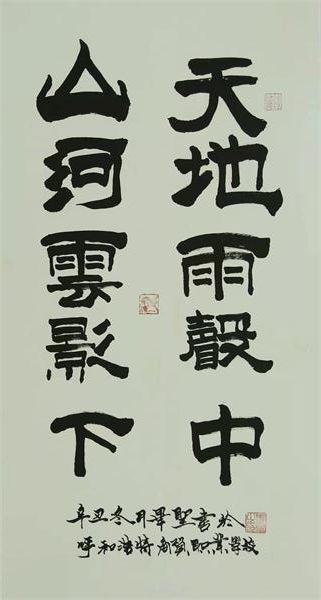 天地雨聲中
山河雲影下
辛丑冬月畢堅書於
呼和浩特商貿职業學校